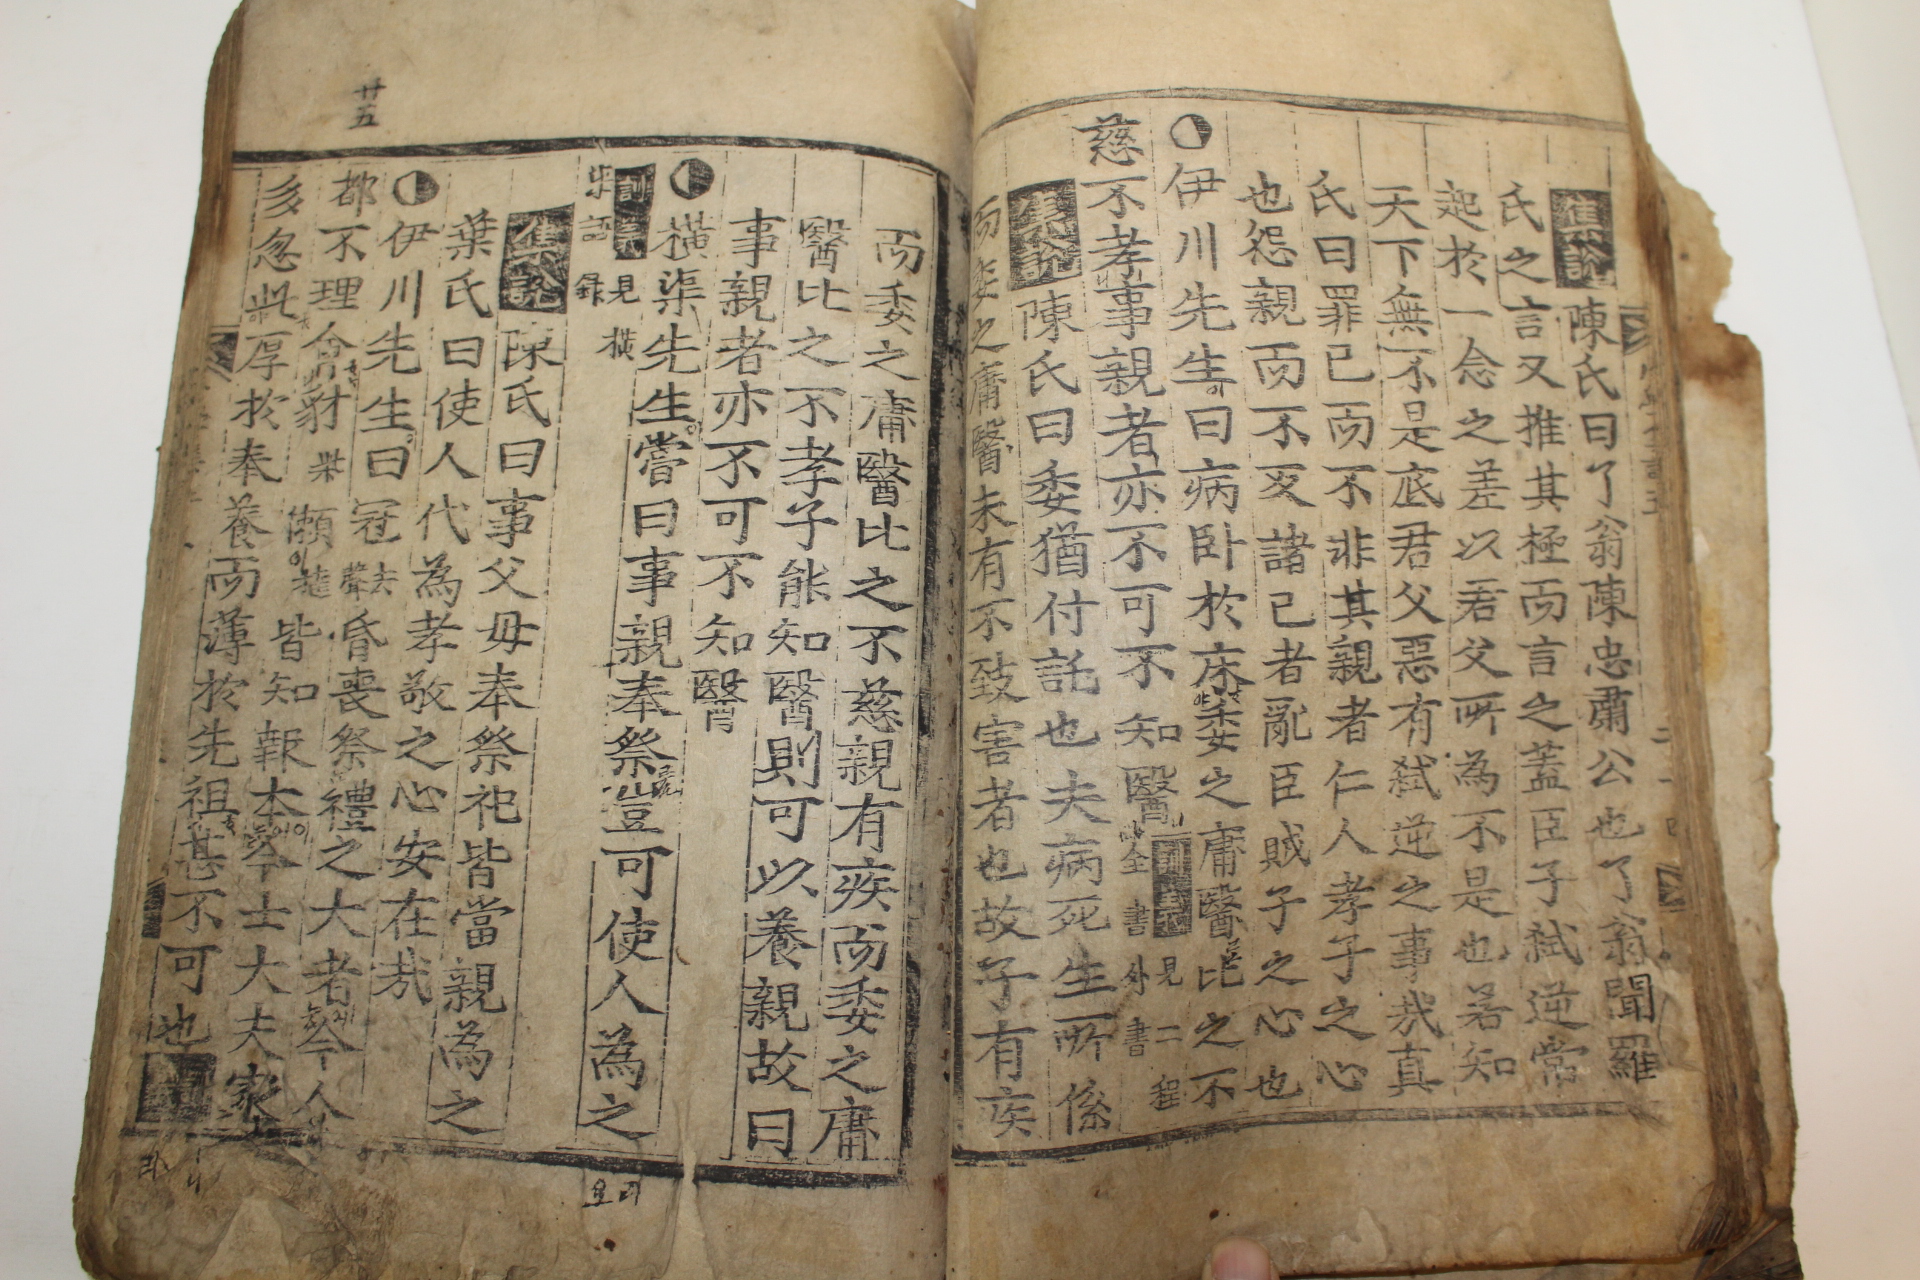 集說陳氏曰了翁陳忠肅公也了翁聞羅
氏之言又推其極而言之蓋臣子弑逆常
起於一念之差以君父所為不是也若知
天下無不是底君父惡有弑逆之事哉真
氏曰罪己而不非其親者仁人孝子之心
也怨親而不反諸己者亂臣賊子之心也
伊川先生曰病臥於床委之庸醫比之不
慈不孝事親者亦不可不知醫
見二程全書外書
集說陳氏曰委猶付託也夫病死生所係
而委之庸醫未有不致害者也故子有疾
而委之庸醫比之不慈親有疾而委之庸
醫比之不孝子能知醫則可以養親故曰
事親者亦不可不知醫
橫渠先生嘗曰事親奉祭豈可使人為之
見橫
語錄
集說陳氏曰事父母奉祭祀皆當親為之
葉氏曰使人代為孝敬之心安在哉
伊川先生曰冠去聲昏喪祭禮之大者今人
都不理會豺獺皆知報本今士大夫家
多忽此厚於奉養而薄於先祖甚不可也
廿五